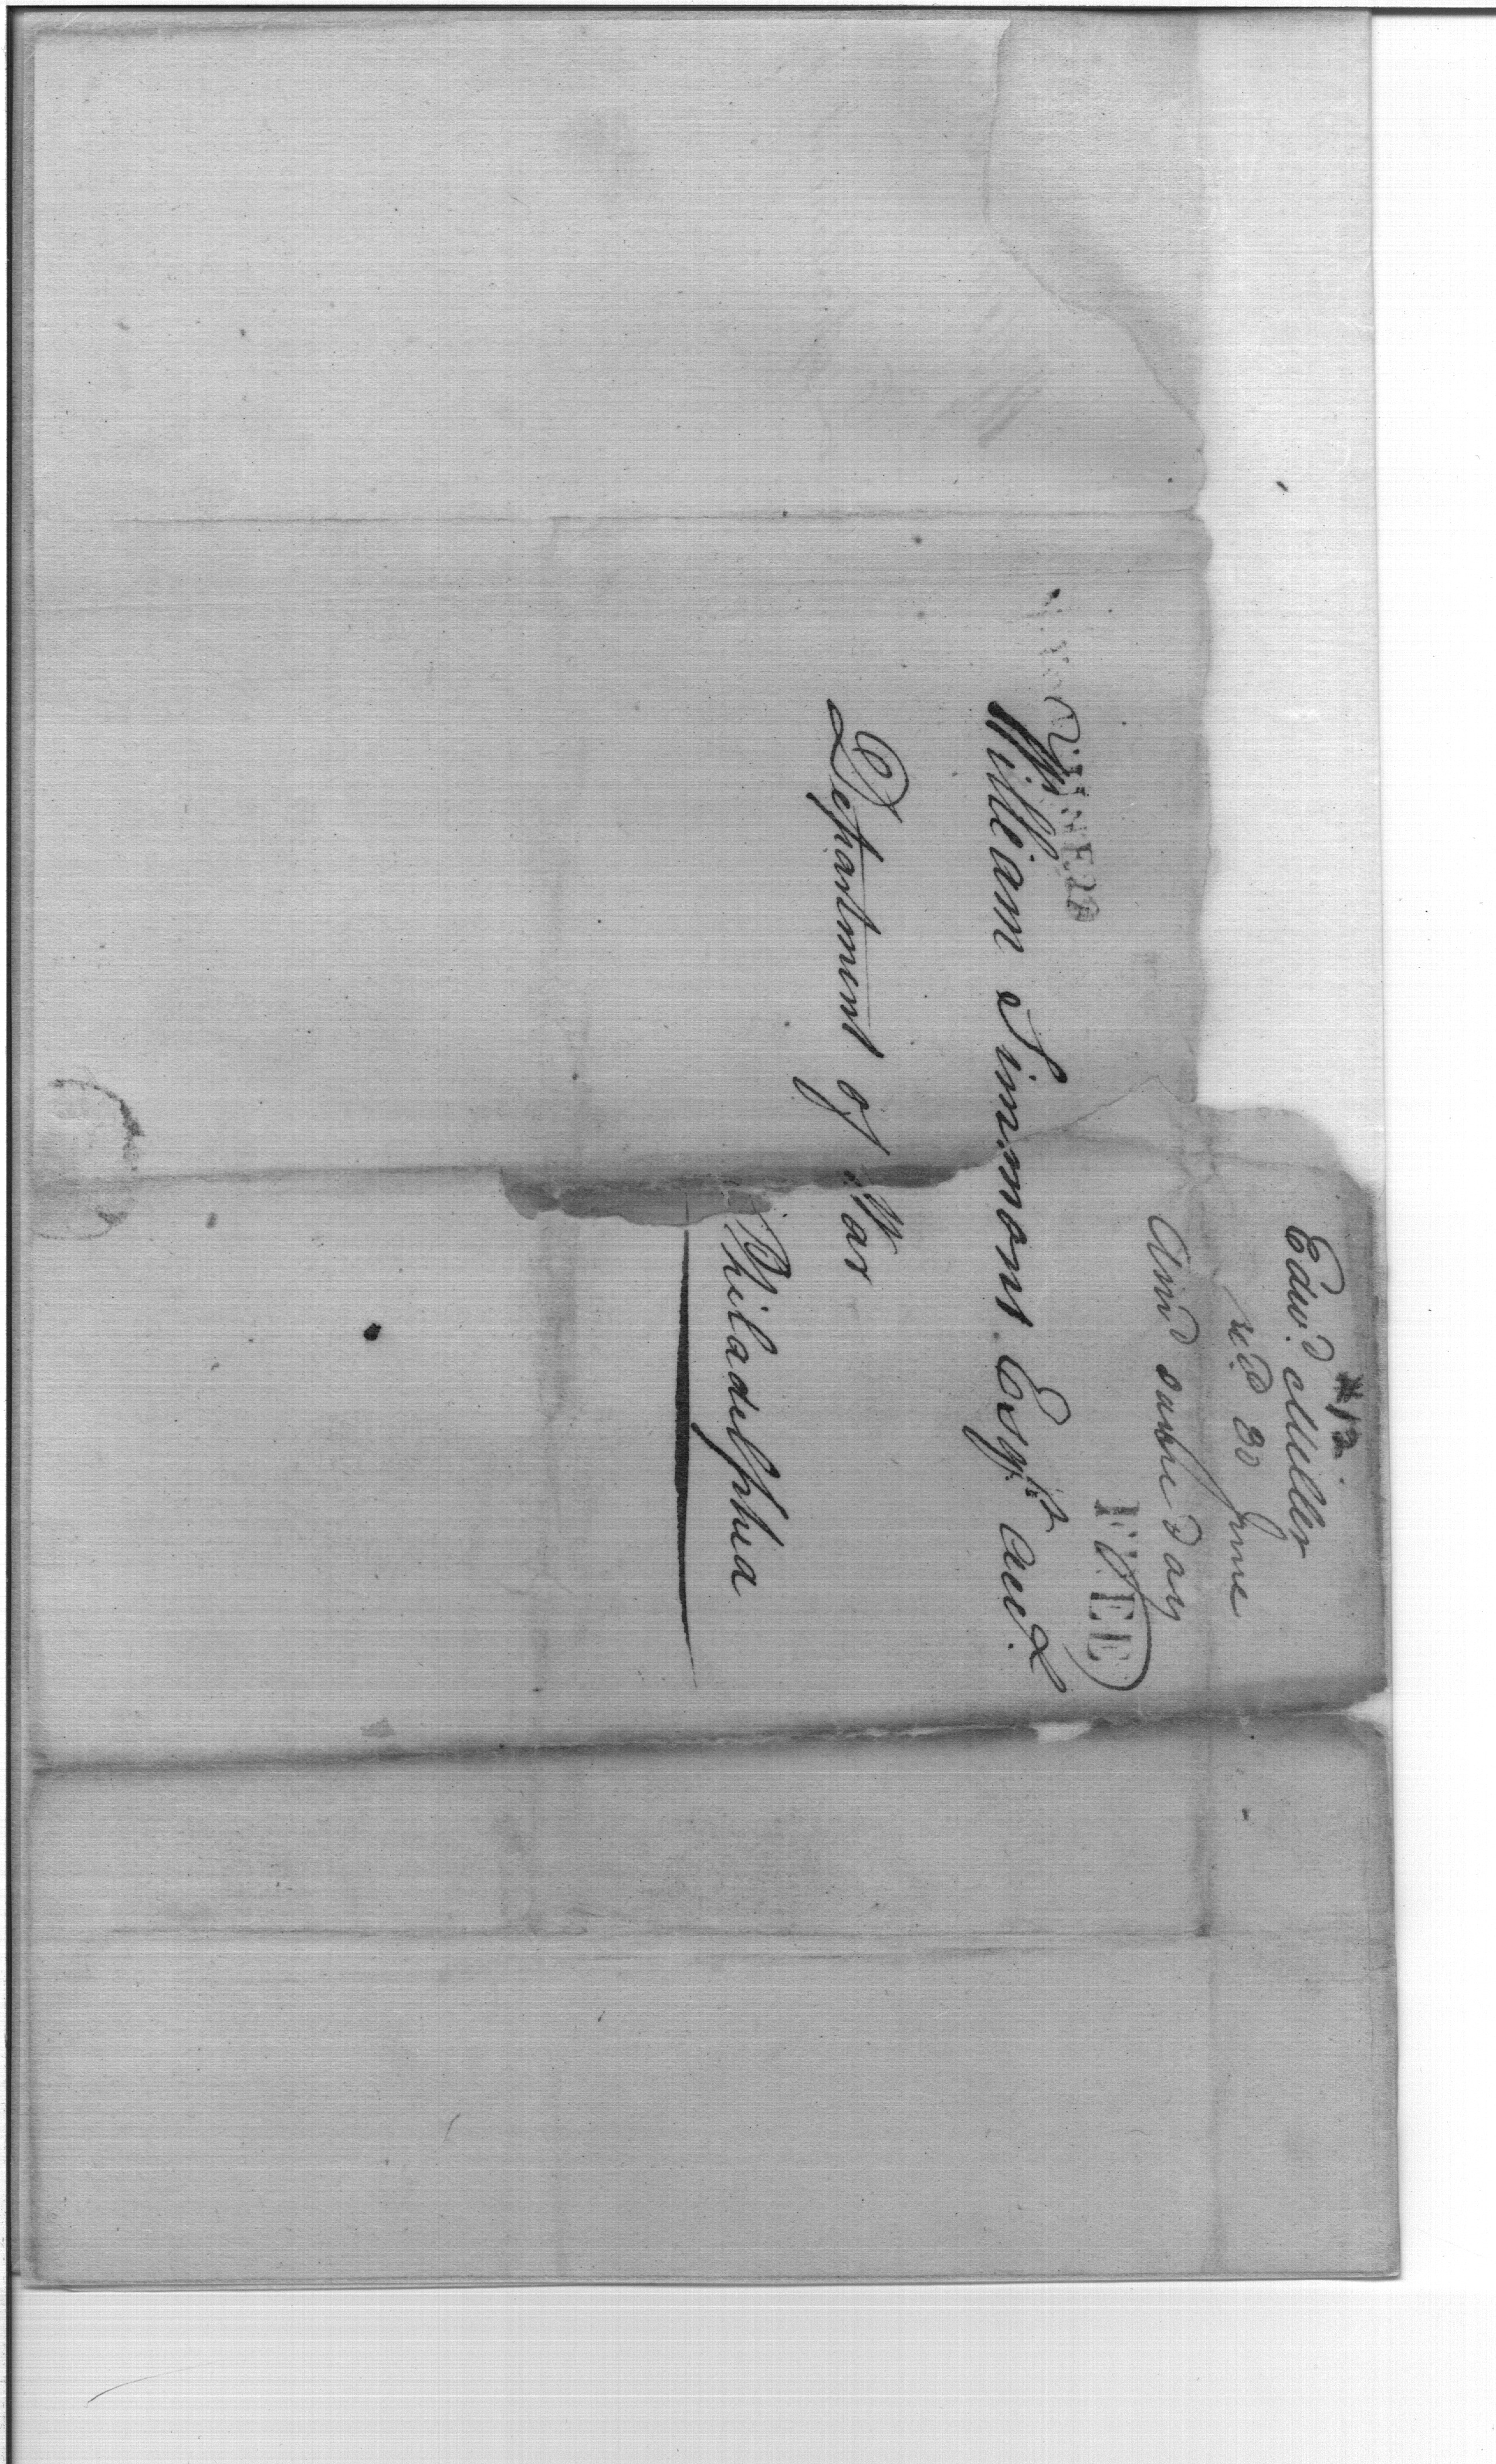 #12
Edw.d Miller
red 30 June
Ans.d same day
FREE
William Simmons Esq.r Acc.t
Department of War
Philadelphia